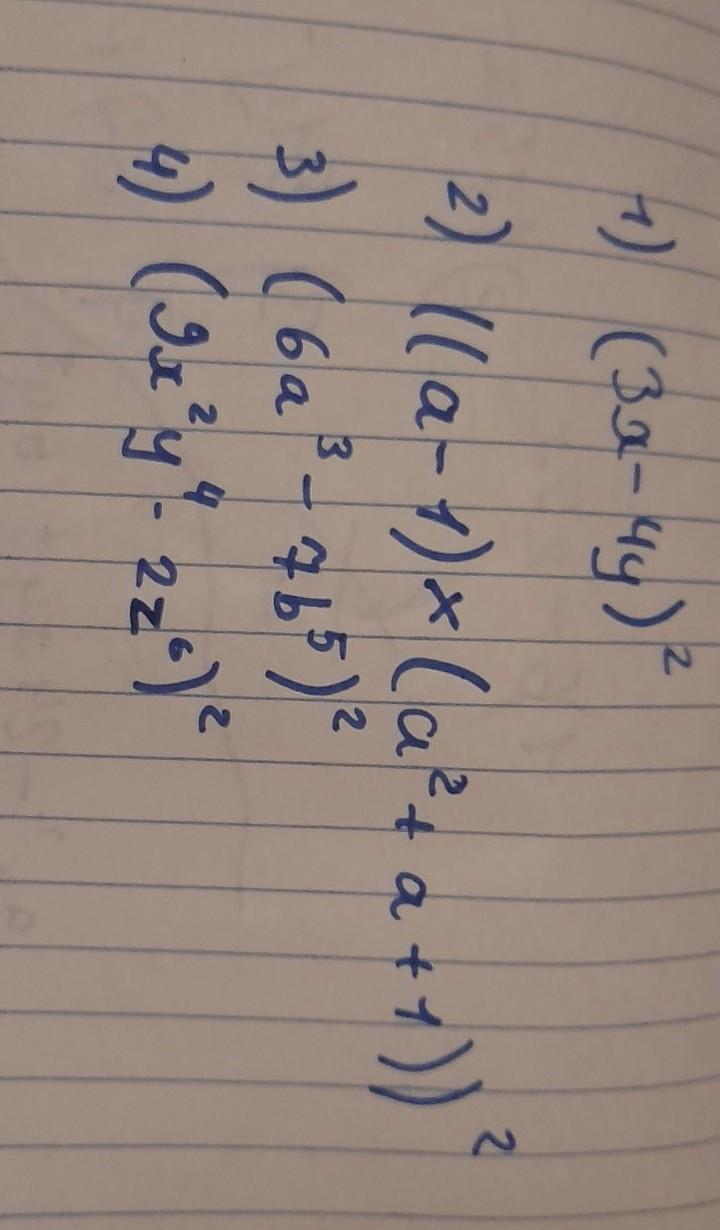 1) (3x-4y)²
2) ((a-1)×(a²+a+1))²
3) (6a³-7b⁵)²
4) (9x²y⁴-2z⁶)²